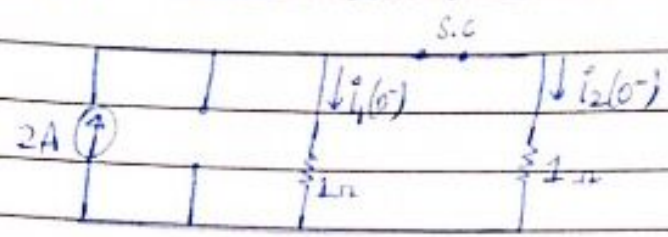 S.C
2A i₁(0⁻) i₂(0⁻)
1Ω 1Ω